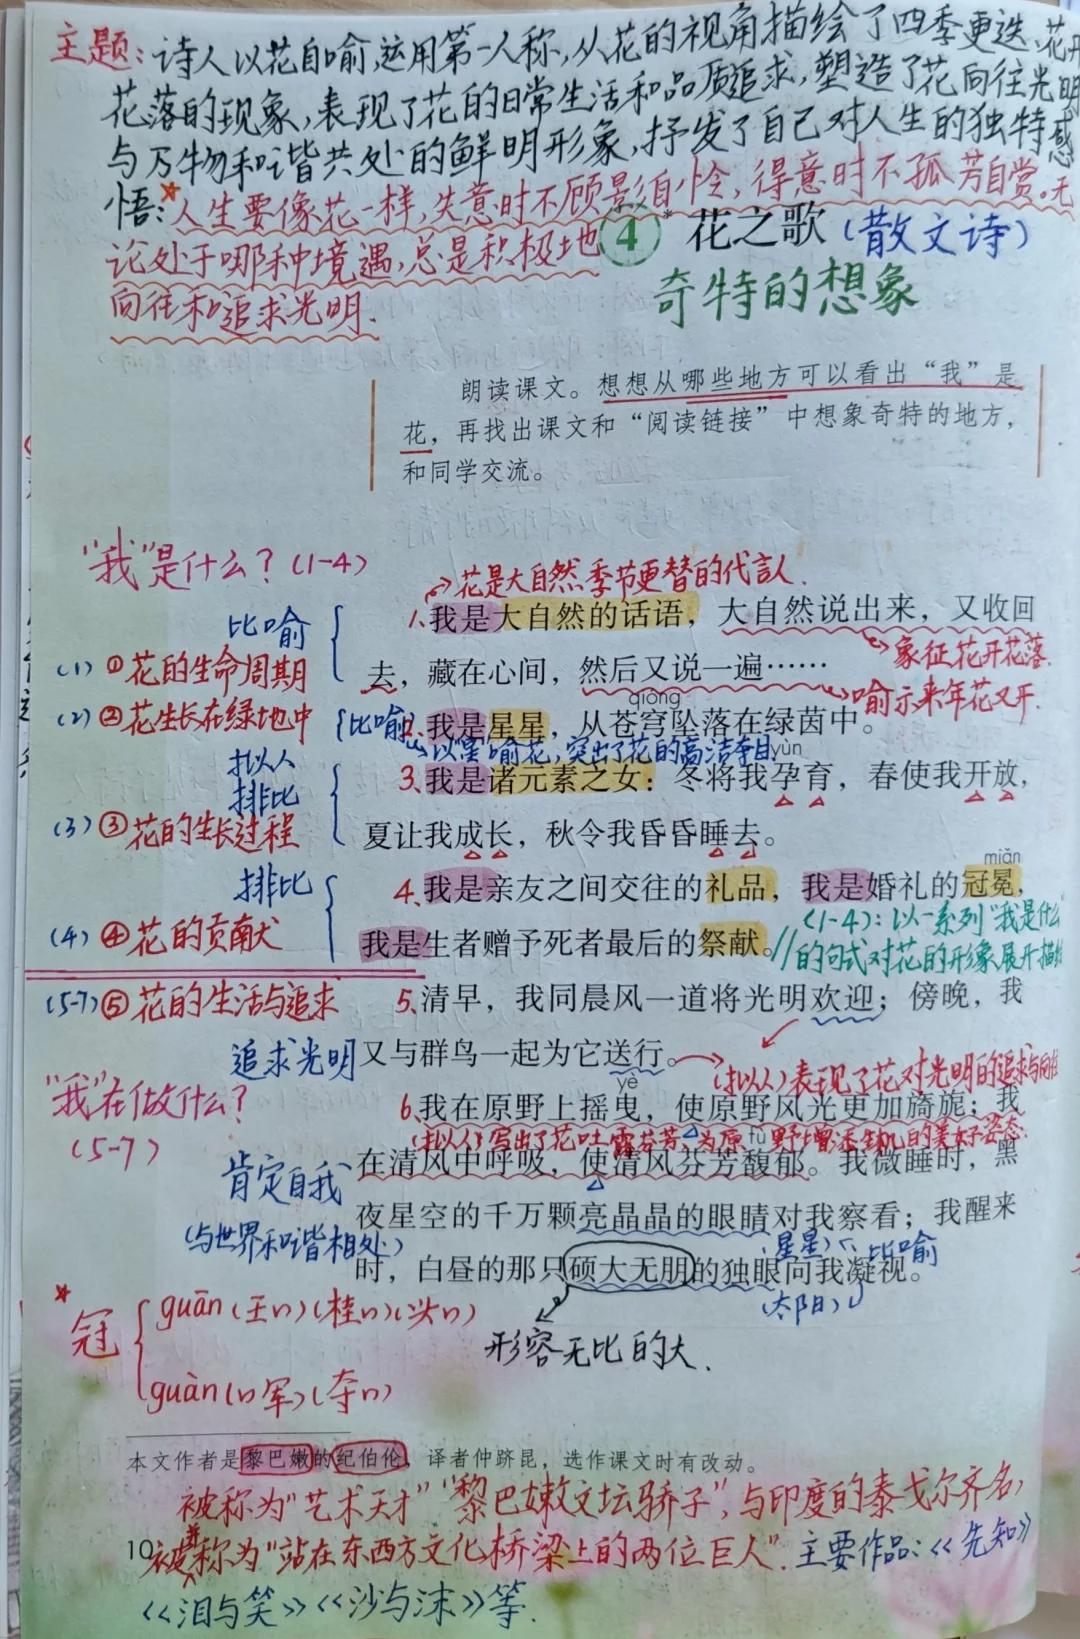 主题:诗人以花自喻,运用第一人称,从花的视角描绘了四季更迭、花开
花落的现象,表现了花的日常生活和品质追求,塑造了花向往光明
与万物和谐共处的鲜明形象,抒发了自己对人生的独特感
悟:人生要像花一样,失意时不顾影自怜,得意时不孤芳自赏。无
论处于哪种境遇,总是积极地
向往和追求光明.
④* 花之歌(散文诗)
奇特的想象
朗读课文。想想从哪些地方可以看出“我”是
花,再找出课文和“阅读链接”中想象奇特的地方,
和同学交流。
“我”是什么?(1-4)
花是大自然季节更替的代言人.
比喻
1.我是大自然的话语,大自然说出来,又收回
象征花开花落.
(1)①花的生命周期
去,藏在心间,然后又说一遍……
喻示来年花又开.
qióng
(2)②花生长在绿地中
比喻
2.我是星星,从苍穹坠落在绿茵中。
以“星”喻花,突出了花的高洁夺目
yùn
拟人
排比
3.我是诸元素之女:冬将我孕育,春使我开放,
(3)③花的生长过程
夏让我成长,秋令我昏昏睡去。
miǎn
排比
4.我是亲友之间交往的礼品,我是婚礼的冠冕,
(4)④花的贡献
我是生者赠予死者最后的祭献。
(1-4):以一系列“我是什么”
的句式对花的形象展开描绘
(5-7)⑤花的生活与追求
5.清早,我同晨风一道将光明欢迎;傍晚,我
追求光明
又与群鸟一起为它送行。
(拟人)表现了花对光明的追求与向往
“我”在做什么?
(5-7)
yè
6.我在原野上摇曳,使原野风光更加旖旎;我
(拟人)写出了花吐露芬芳,为原野增添生机的美好姿态.
fù
在清风中呼吸,使清风芬芳馥郁。我微睡时,黑
肯定自我
(与世界和谐相处)
夜星空的千万颗亮晶晶的眼睛对我察看;我醒来
(星星) 比喻
时,白昼的那只硕大无朋的独眼向我凝视。
(太阳)
形容无比的大.
冠
guān(王n)(桂n)(头n)
guàn(n军)(夺n)
本文作者是黎巴嫩的纪伯伦,译者仲跻昆,选作课文时有改动。
被称为“艺术天才”“黎巴嫩文坛骄子”,与印度的泰戈尔齐名,
10
被并称为“站在东西方文化桥梁上的两位巨人”.主要作品:《先知》
《泪与笑》《沙与沫》等.